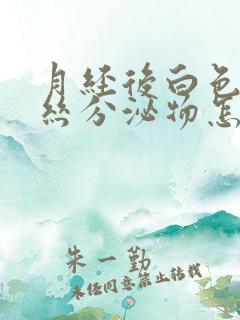 月经後白色
丝分泌物怎
朱一勤
未经同意禁止转载